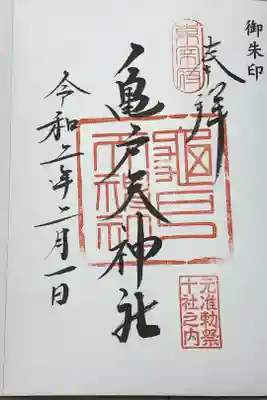 御朱印
奉拝
東宰府
亀戸天神社
亀戸
天神社
元准勅祭
十社之内
令和二年二月一日